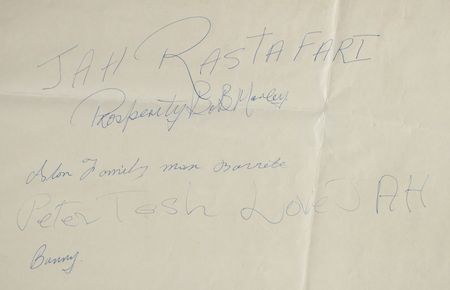 JAH RASTAFARI
Prosperity Bob Marley
Aston Family man Barrett
Peter Tosh Love JAH
Bunny